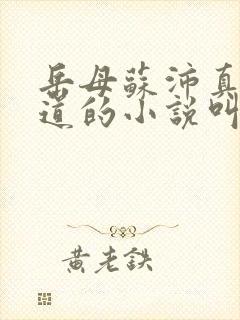 岳母蘇沛真
道的小說叫
黃老鉄